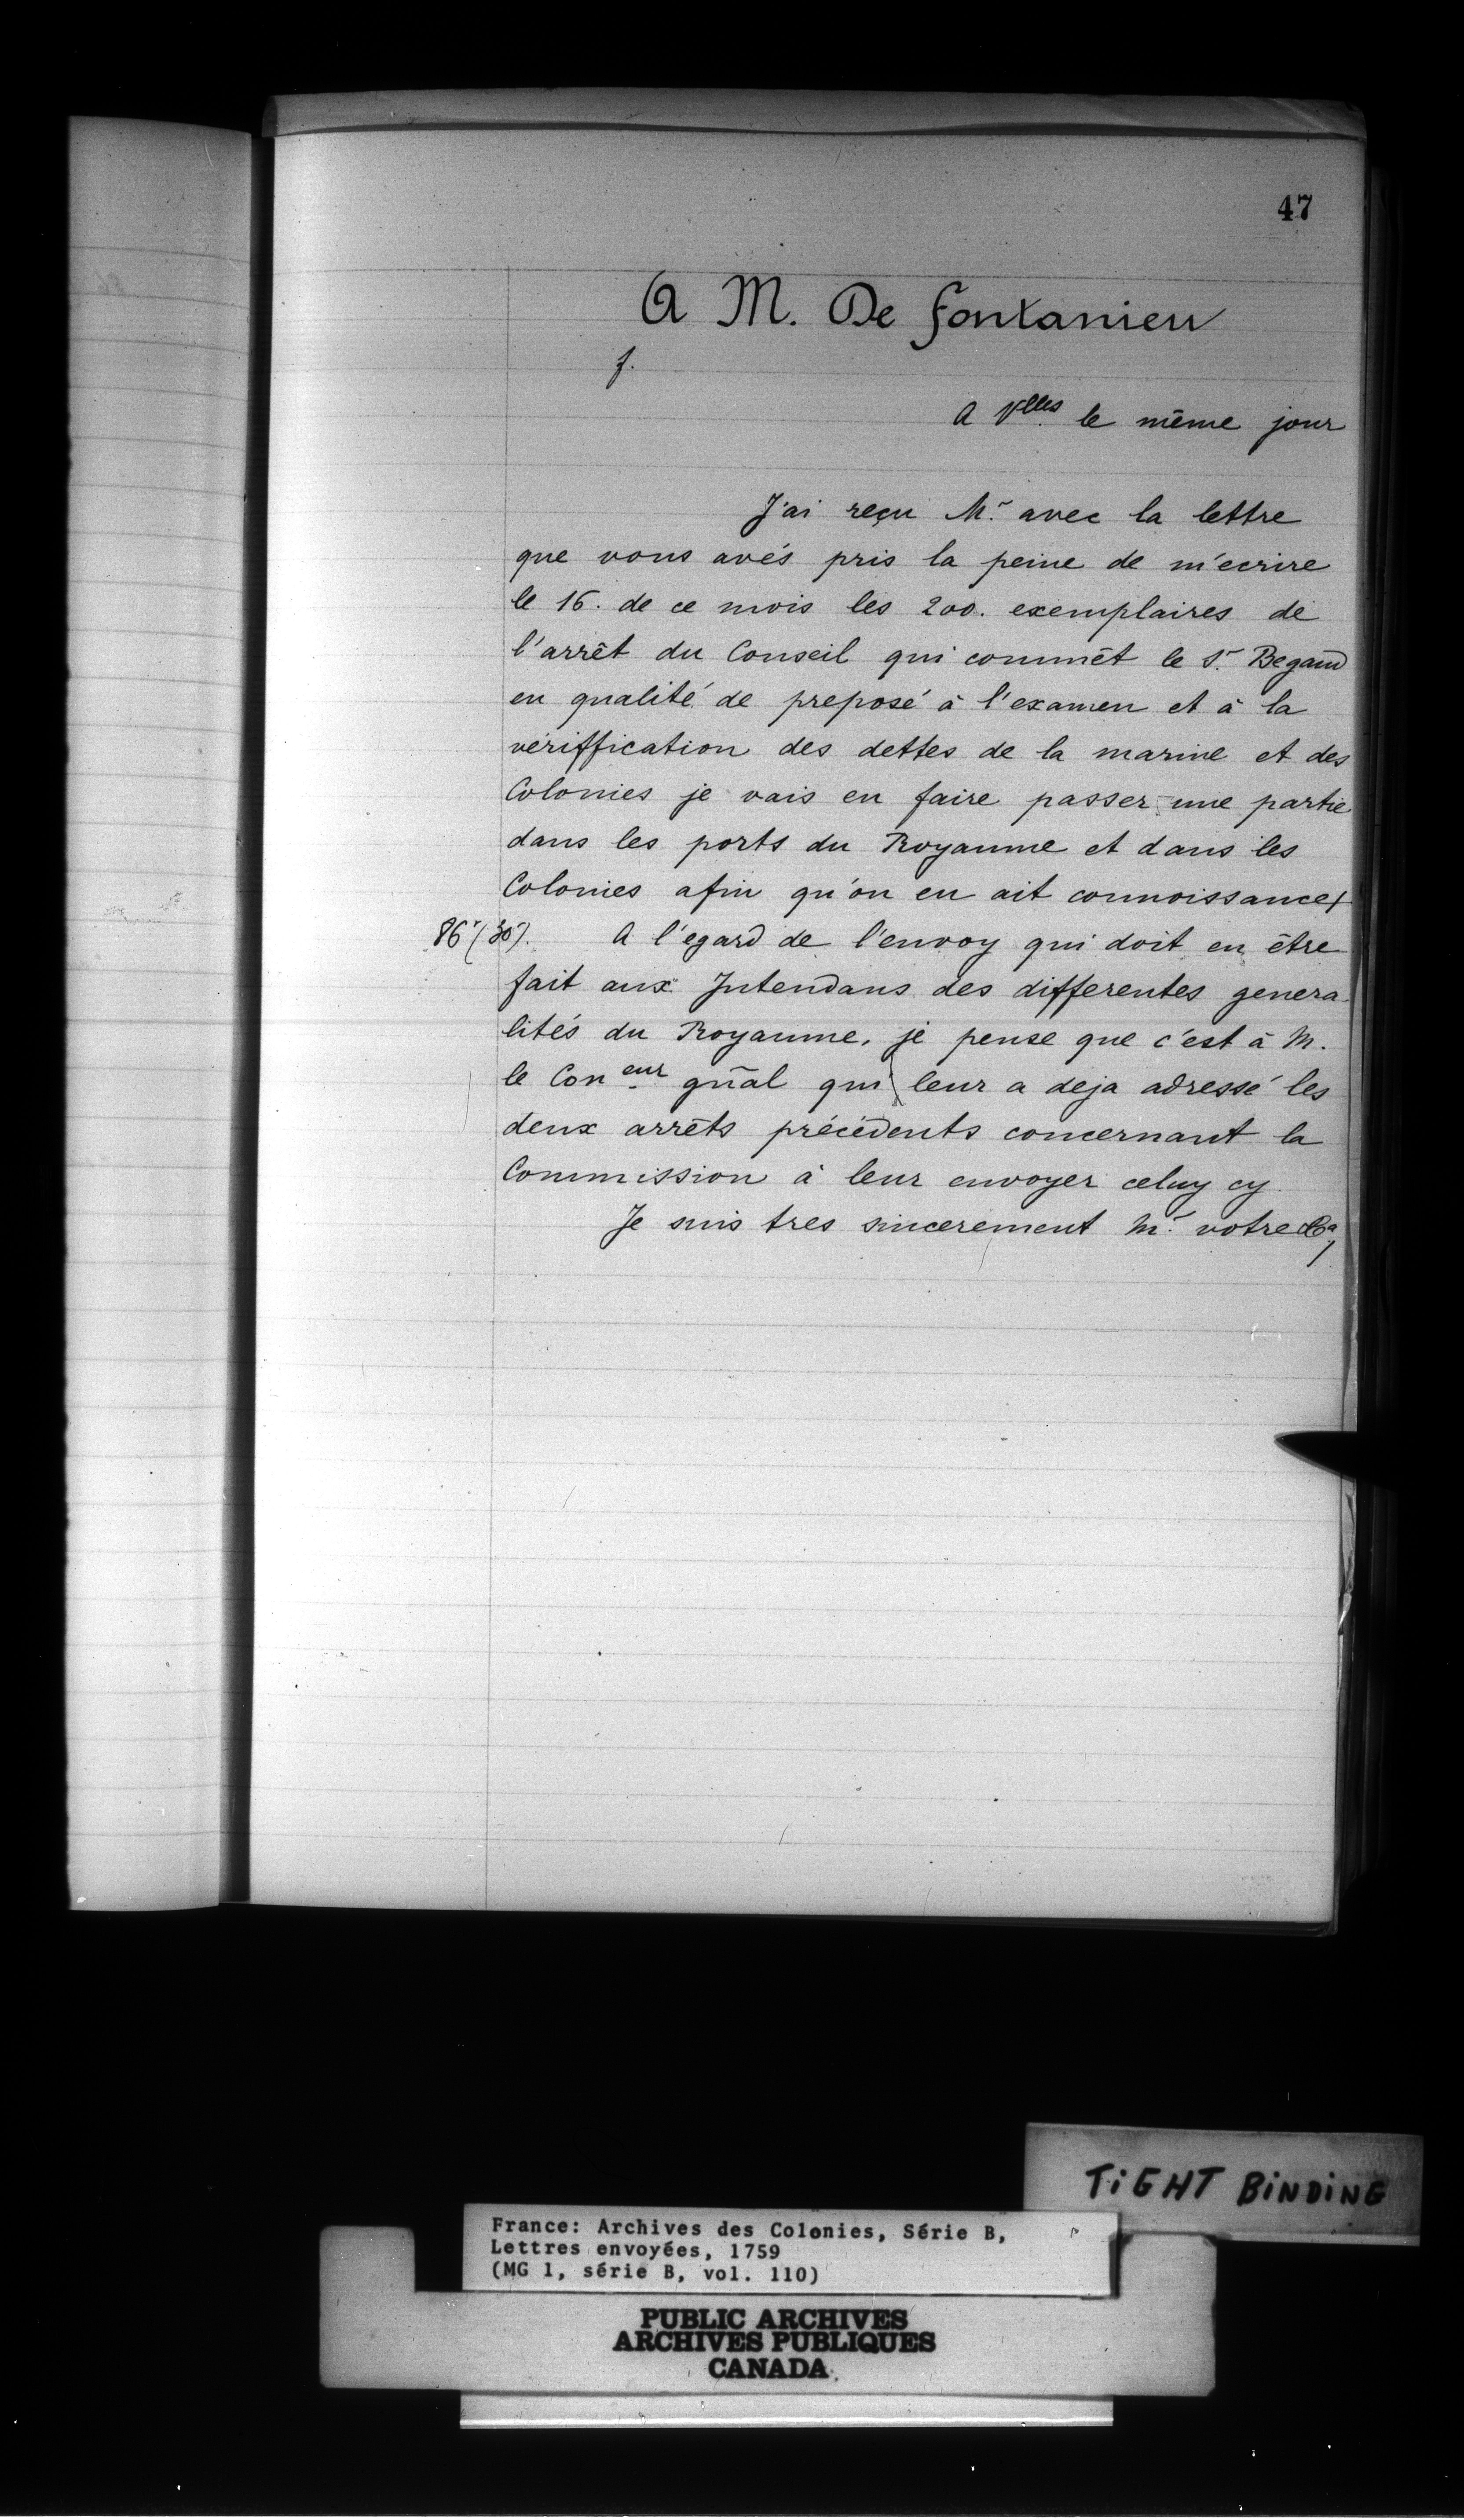 47
A M. De fontanieu
f.
A Vlles le même jour
J'ai reçu Mr. avec la lettre
que vous avés pris la peine de m'ecrire
le 16. de ce mois les 200. exemplaires de
l'arrêt du Conseil qui commêt le Sr. Begaud
en qualité de preposé à l'examen et à la
vériffication des dettes de la marine et des
Colonies je vais en faire passer une partie
dans les ports du Royaume et dans les
Colonies afin qu'on en ait connoissance
A l'egard de l'envoy qui doit en être
fait aux Intendans des differentes genera
lités du Royaume, je pense que c'est à M.
le Coneur gñal qui leur a deja adressé les
deux arrêts précédents concernant la
Commission à leur envoyer celuy cy
Je suis tres sincerement Mr. votre
TIGHT BINDING
France: Archives des Colonies, Série B,
Lettres envoyées, 1759
(MG 1, série B, vol. 110)
PUBLIC ARCHIVES
ARCHIVES PUBLIQUES
CANADA